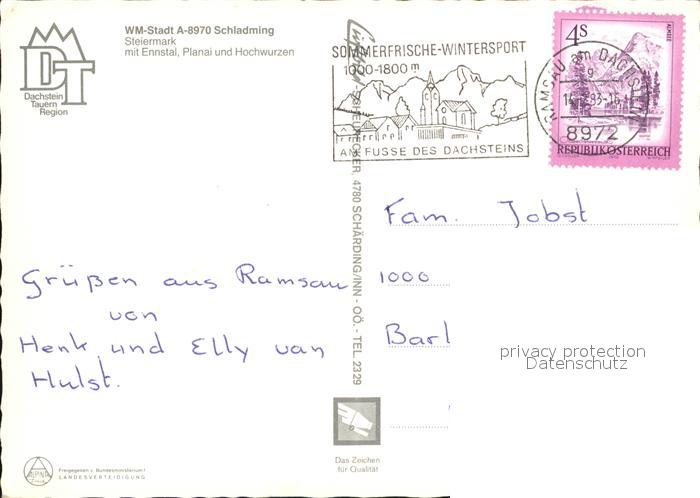 WM-Stadt A-8970 Schladming
Steiermark
mit Ennstal, Planai und Hochwurzen
DT
Dachstein
Tauern
Region
SOMMERFRISCHE-WINTERSPORT
1000-1800 m
AM FUSSE DES DACHSTEINS
RAMSAU am DACHSTEIN
8972
4S
ALMSEE
REPUBLIK ÖSTERREICH
4780 SCHÄRDING/INN - OÖ. - TEL. 2329
Fam. Jobst
1000
Barl
Grüßen aus Ramsau
von
Henk und Elly van
Hulst.
privacy protection
Datenschutz
Das Zeichen
für Qualität
ALPINA
Freigegeben v. Bundesministerium f.
LANDESVERTEIDIGUNG